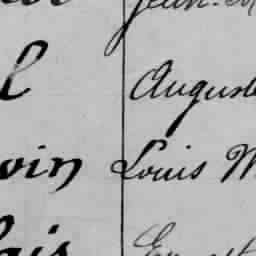 Jean-M
l Auguste
voin Louis M
lais Ernest